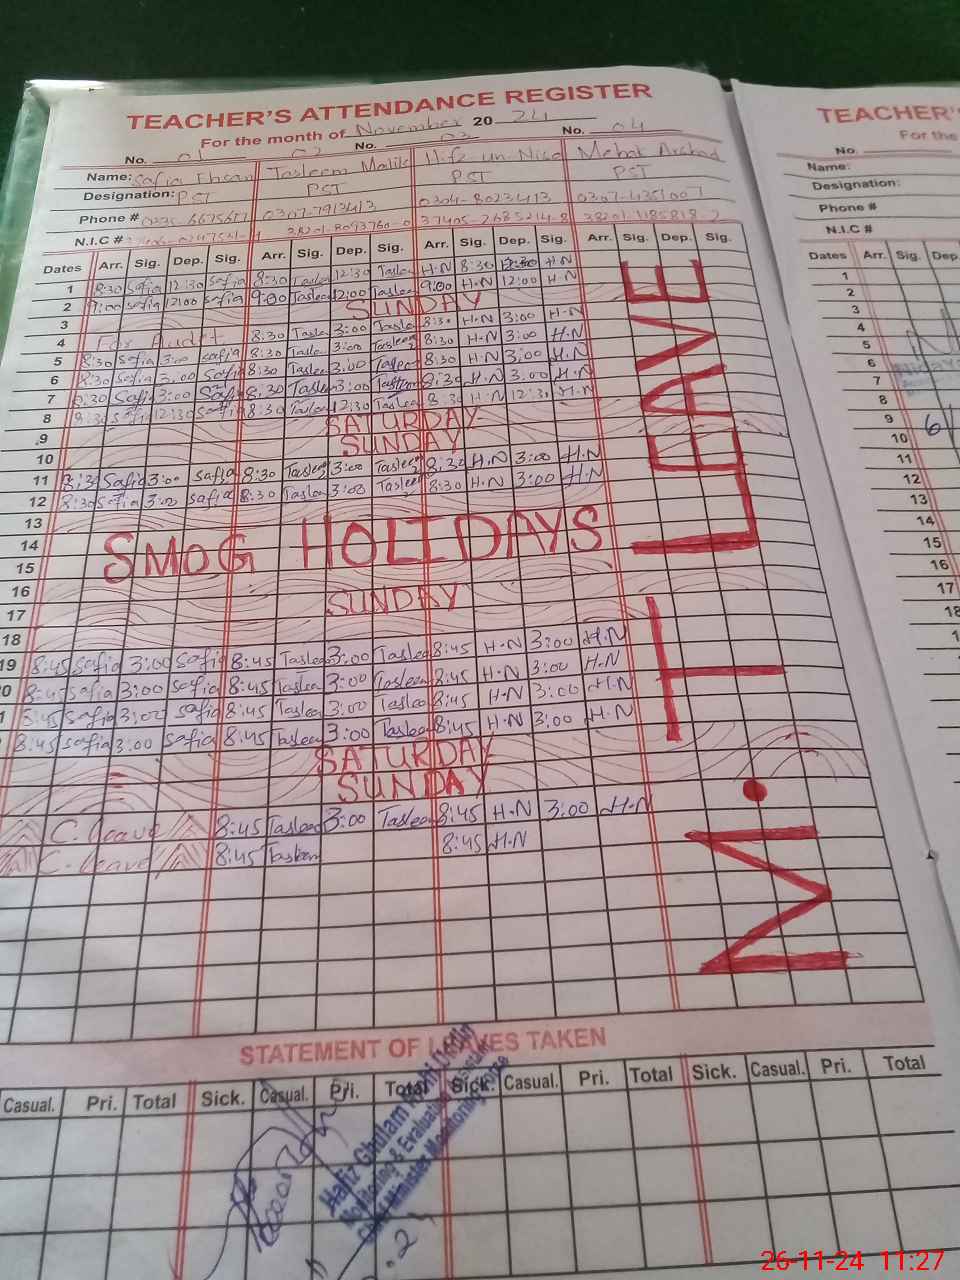 TEACHER'S ATTENDANCE REGISTER
For the month of November 2024
No. 01 02 No. 03 No. 04
Name: Safia Ehsan Tasleem Malik Hifz-un-Nisa Mehat Arshad
Designation: PST PST PST PST
Phone # 0307-7913413 0304-8023413
N.I.C #
Dates Arr. Sig. Dep. Sig. Arr. Sig. Dep. Sig. Arr. Sig. Dep. Sig. Arr. Sig. Dep. Sig.
1 8:30 Safia 12:30 Safia 8:30 Tasleem 12:30 Tasleem H.N 8:30 12:30 H.N
2 9:00 Safia 12:00 Safia 9:00 Tasleem 12:00 Tasleem 9:00 H.N 12:00 H.N
3 SUNDAY
4 For Audit 8:30 Tasleem 3:00 Tasleem 8:30 H.N 3:00 H.N
5 8:30 Safia 3:00 Safia 8:30 Tasleem 3:00 Tasleem 8:30 H.N 3:00 H.N
6 8:30 Safia 3:00 Safia 8:30 Tasleem 3:00 Tasleem 8:30 H.N 3:00 H.N
7 8:30 Safia 3:00 Safia 8:30 Tasleem 3:00 Tasleem 8:30 H.N 3:00 H.N
8 8:30 Safia 12:30 Safia 8:30 Tasleem 12:30 Tasleem 8:30 H.N 12:30 H.N
9 SATURDAY
10 SUNDAY
11 8:30 Safia 3:00 Safia 8:30 Tasleem 3:00 Tasleem 8:30 H.N 3:00 H.N
12 8:30 Safia 3:00 Safia 8:30 Tasleem 3:00 Tasleem 8:30 H.N 3:00 H.N
13
14 SMOG HOLIDAYS
15
16
17 SUNDAY
18
19 8:45 Safia 3:00 Safia 8:45 Tasleem 3:00 Tasleem 8:45 H.N 3:00 H.N
0 8:45 Safia 3:00 Safia 8:45 Tasleem 3:00 Tasleem 8:45 H.N 3:00 H.N
1 8:45 Safia 3:00 Safia 8:45 Tasleem 3:00 Tasleem 8:45 H.N 3:00 H.N
8:45 Safia 3:00 Safia 8:45 Tasleem 3:00 Tasleem 8:45 H.N 3:00 H.N
SATURDAY
SUNDAY
C. leave 8:45 Tasleem 3:00 Tasleem 8:45 H.N 3:00 H.N
C. leave 8:45 Tasleem 8:45 H.N
M.T LEAVE
STATEMENT OF LEAVES TAKEN
Casual. Pri. Total Sick. Casual. Pri. Total Sick. Casual. Pri. Total Sick. Casual. Pri. Total
Hafiz Ghulam
Monitoring & Evaluation Assistant
Chief Minister Monitoring Force
TEACHER'S
For the
No.
Name:
Designation:
Phone #
N.I.C #
Dates Arr. Sig. Dep.
1
2
3
4
5
6
7
8
9
10
11
12
13
14
15
16
17
18
26-11-24 11:27